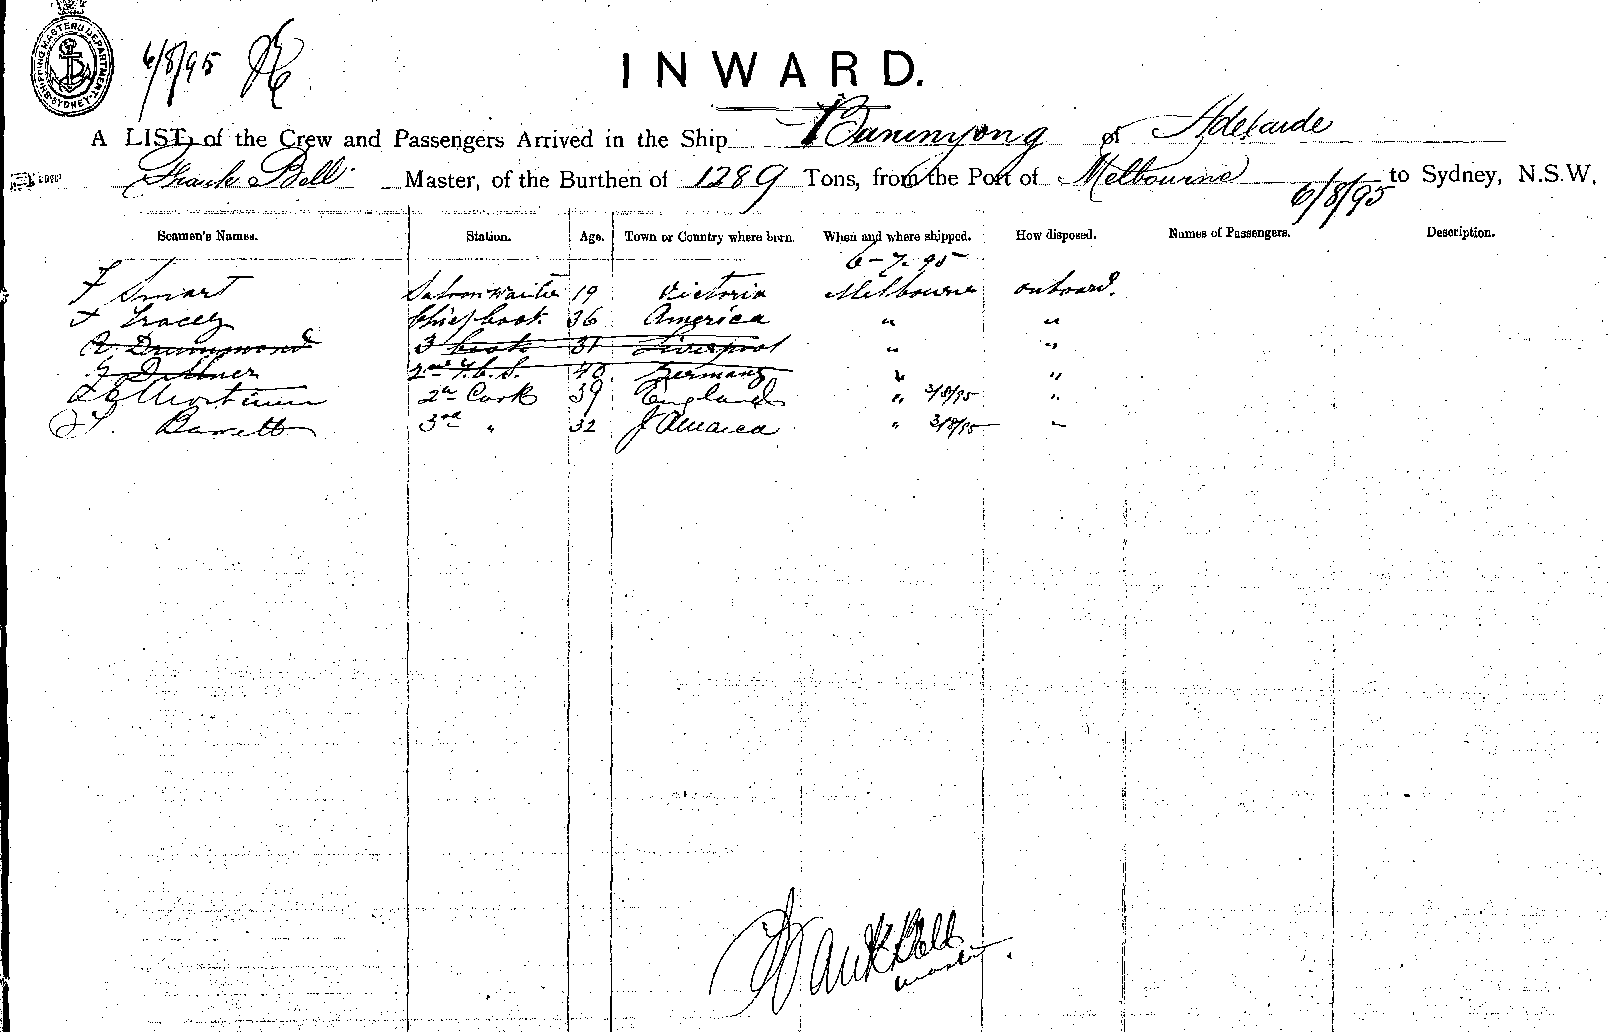 SHIPPING MASTERS DEPARTMENT SYDNEY
6/8/95
INWARD.
A LIST of the Crew and Passengers Arrived in the Ship Buninyong of Adelaide
Frank Bell Master, of the Burthen of 1289 Tons, from the Port of Melbourne to Sydney, N.S.W.
6/8/95
Seamen's Names. Station. Age. Town or Country where born. When and where shipped. How disposed. Names of Passengers. Description.
6-7-95
F Smart Saloon waiter 19 Victoria Melbourne onboard.
F Tracey Chief Cook 36 America " "
A Drummond 3 Cook 31 Liverpool " "
2nd 40 Germany " "
Mortimer 2nd Cook 39 England " 3/8/95 "
Barrett 3rd " 32 Jamaica " 3/8/95 "
Frank Bell
Master